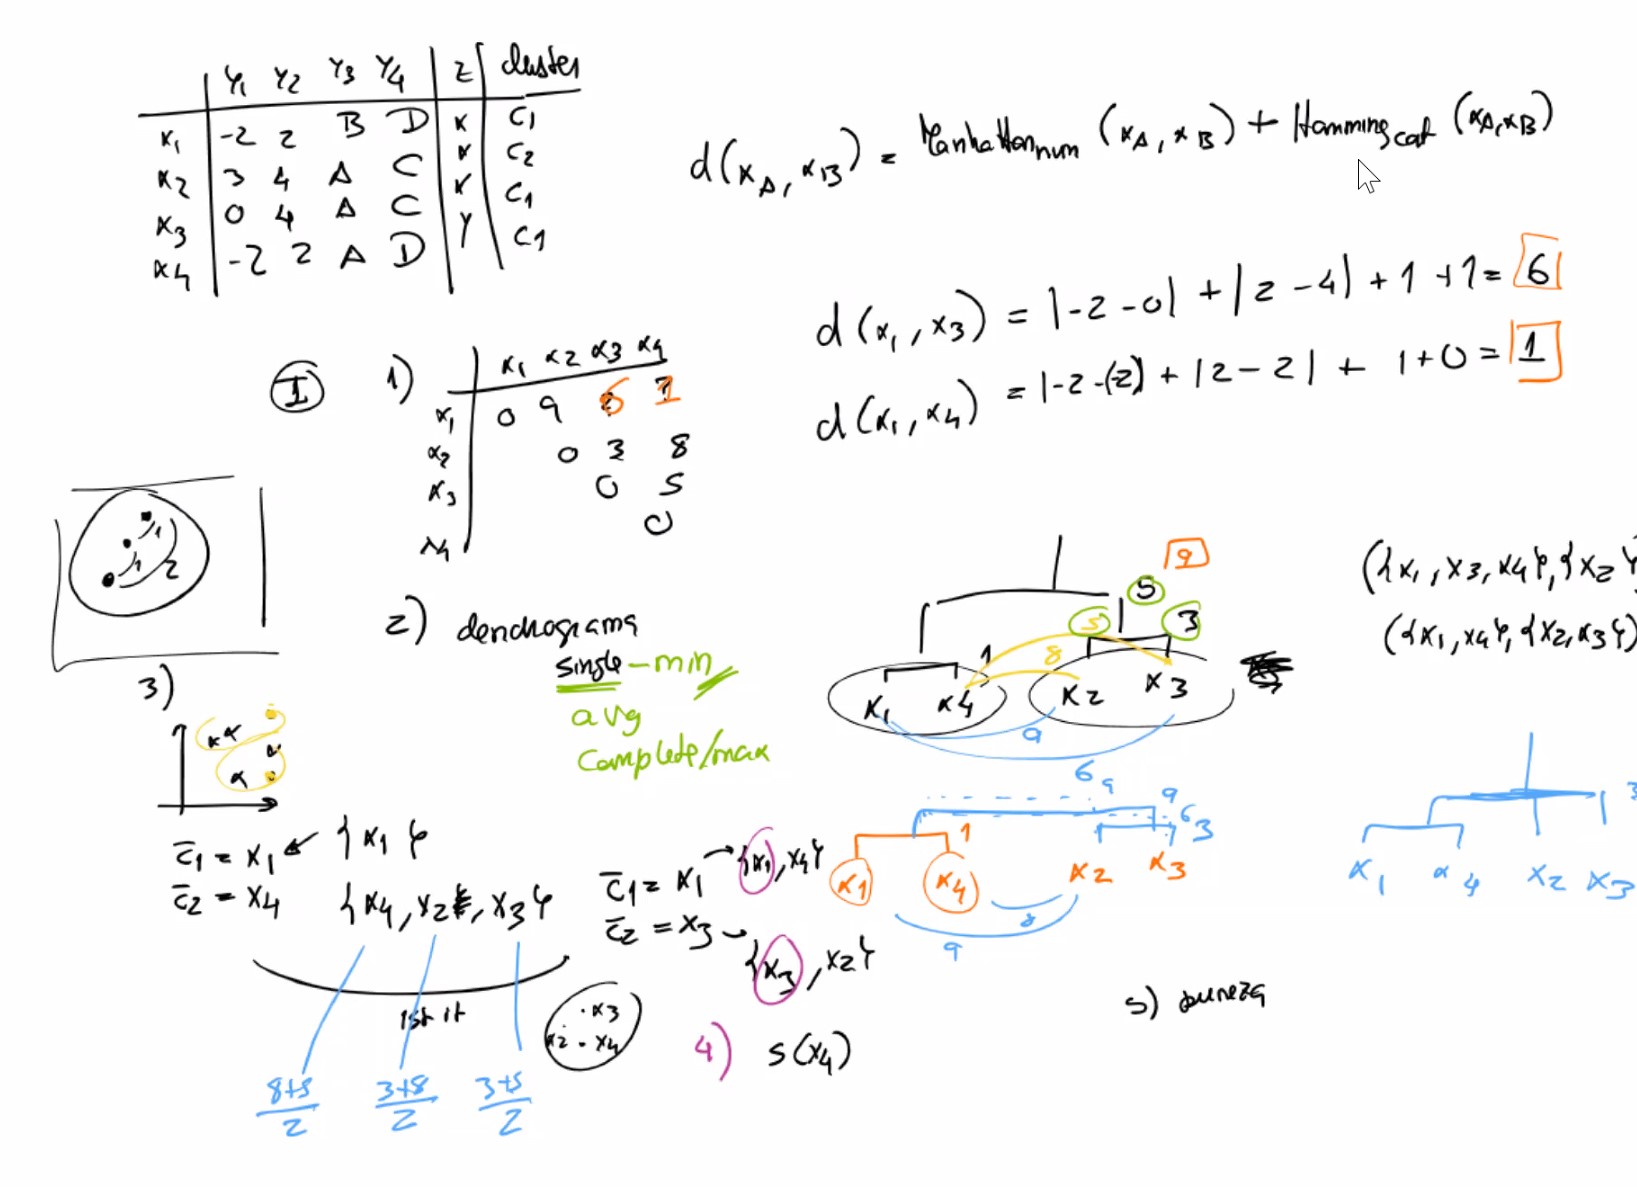 y1 y2 y3 y4 z cluster
x1 -2 2 B D x C1
x2 3 4 A C x C2
x3 0 4 A C x C1
x4 -2 2 A D y C1
d(xA, xB) = Manhattan num (xA, xB) + Hamming cat (xA, xB)
d(x1, x3) = |-2-0| + |2-4| + 1 + 1 = 6
d(x1, x4) = |-2-(-2)| + |2-2| + 1+0 = 1
I 1)
x1 x2 x3 x4
x1 0 9 6 1
x2 0 3 8
x3 0 5
x4 0
1 1 2
2) dendrograma
single - min
avg
complete/max
9
5
5 3
1 8
x1 x4 x2 x3
9
6
({x1, x3, x4}, {x2}
({x1, x4}, {x2, x3})
3)
c̄1 = x1 {x1}
c̄2 = x4 {x4, x2, x3}
1st it
(8+5)/2 (3+8)/2 (3+5)/2
c̄1 = x1 → {x1, x4}
c̄2 = x3 → {x3, x2}
x3
x2 x4
9 9
1 6 3
x1 x4 x2 x3
8
9
3
x1 x4 x2 x3
4) s(x4)
5) pureza